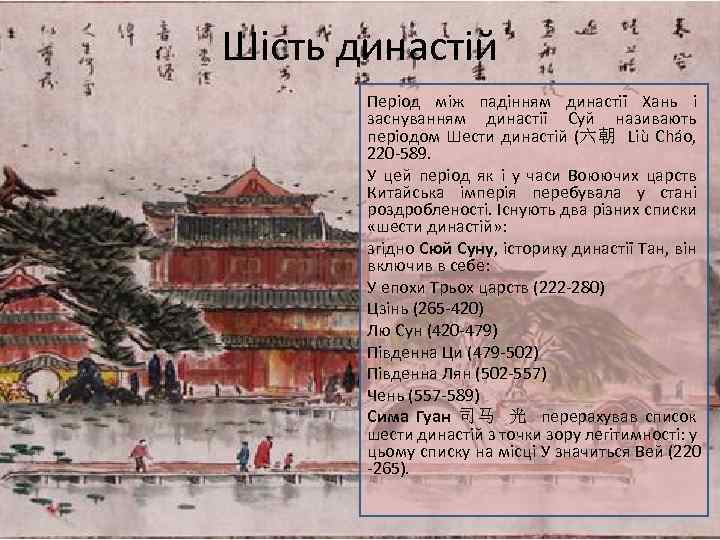 Шість династій
Період між падінням династії Хань і
заснуванням династії Суй називають
періодом Шести династій (六朝 Liù Cháo,
220-589.
У цей період як і у часи Воюючих царств
Китайська імперія перебувала у стані
роздробленості. Існують два різних списки
«шести династій» :
згідно Сюй Суну, історику династії Тан, він
включив в себе:
У епохи Трьох царств (222-280)
Цзінь (265-420)
Лю Сун (420-479)
Південна Ци (479-502)
Південна Лян (502-557)
Чень (557-589)
Сима Гуан 司马 光 перерахував список
шести династій з точки зору легітимності: у
цьому списку на місці У значиться Вей (220
-265).